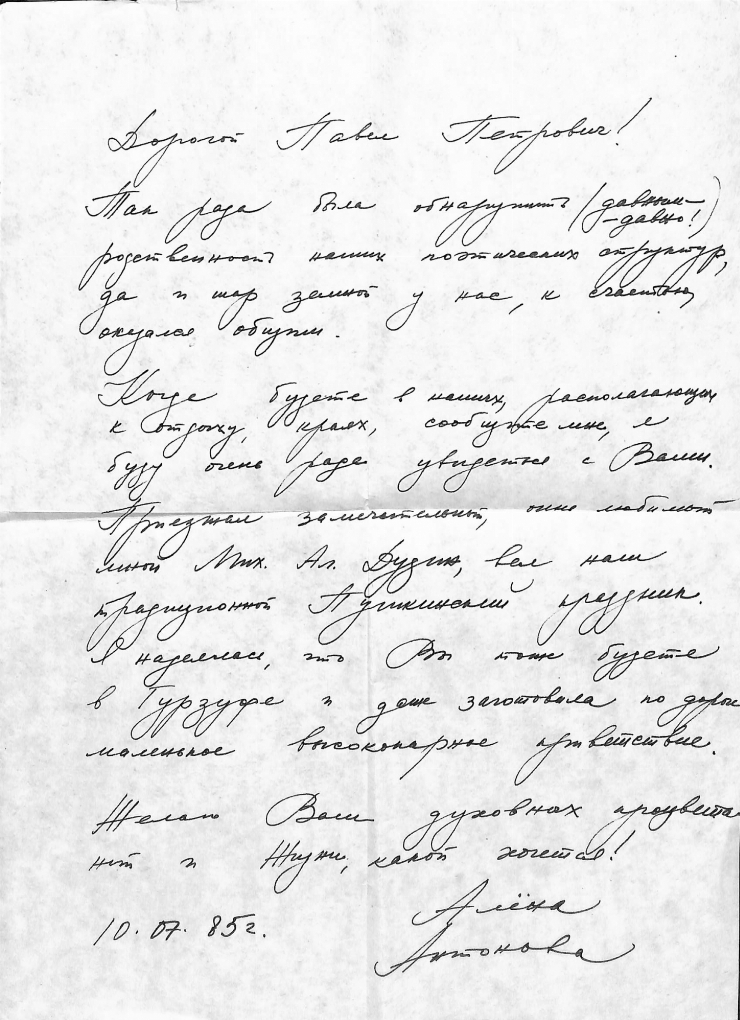 Дорогой Павел Петрович!
Так рада была обнаружить (давным-
-давно!)
родственность наших поэтических структур,
да и шар земной у нас, к счастью,
оказался общим.
Когда будете в наших, располагающих
к отдыху, краях, сообщите мне, я
буду очень рада увидеться с Вами.
Приезжал замечательный, очень любимый
мной Мих. Ал. Дудин, вел наш
традиционный Пушкинский праздник.
Я надеялась, что Вы тоже будете
в Гурзуфе и даже заготовила по дороге
маленькое высокопарное приветствие.
Желаю Вам духовных процвета-
ний и Жизни, какой хочется!
Алёна
10.07.85г.
Антонова